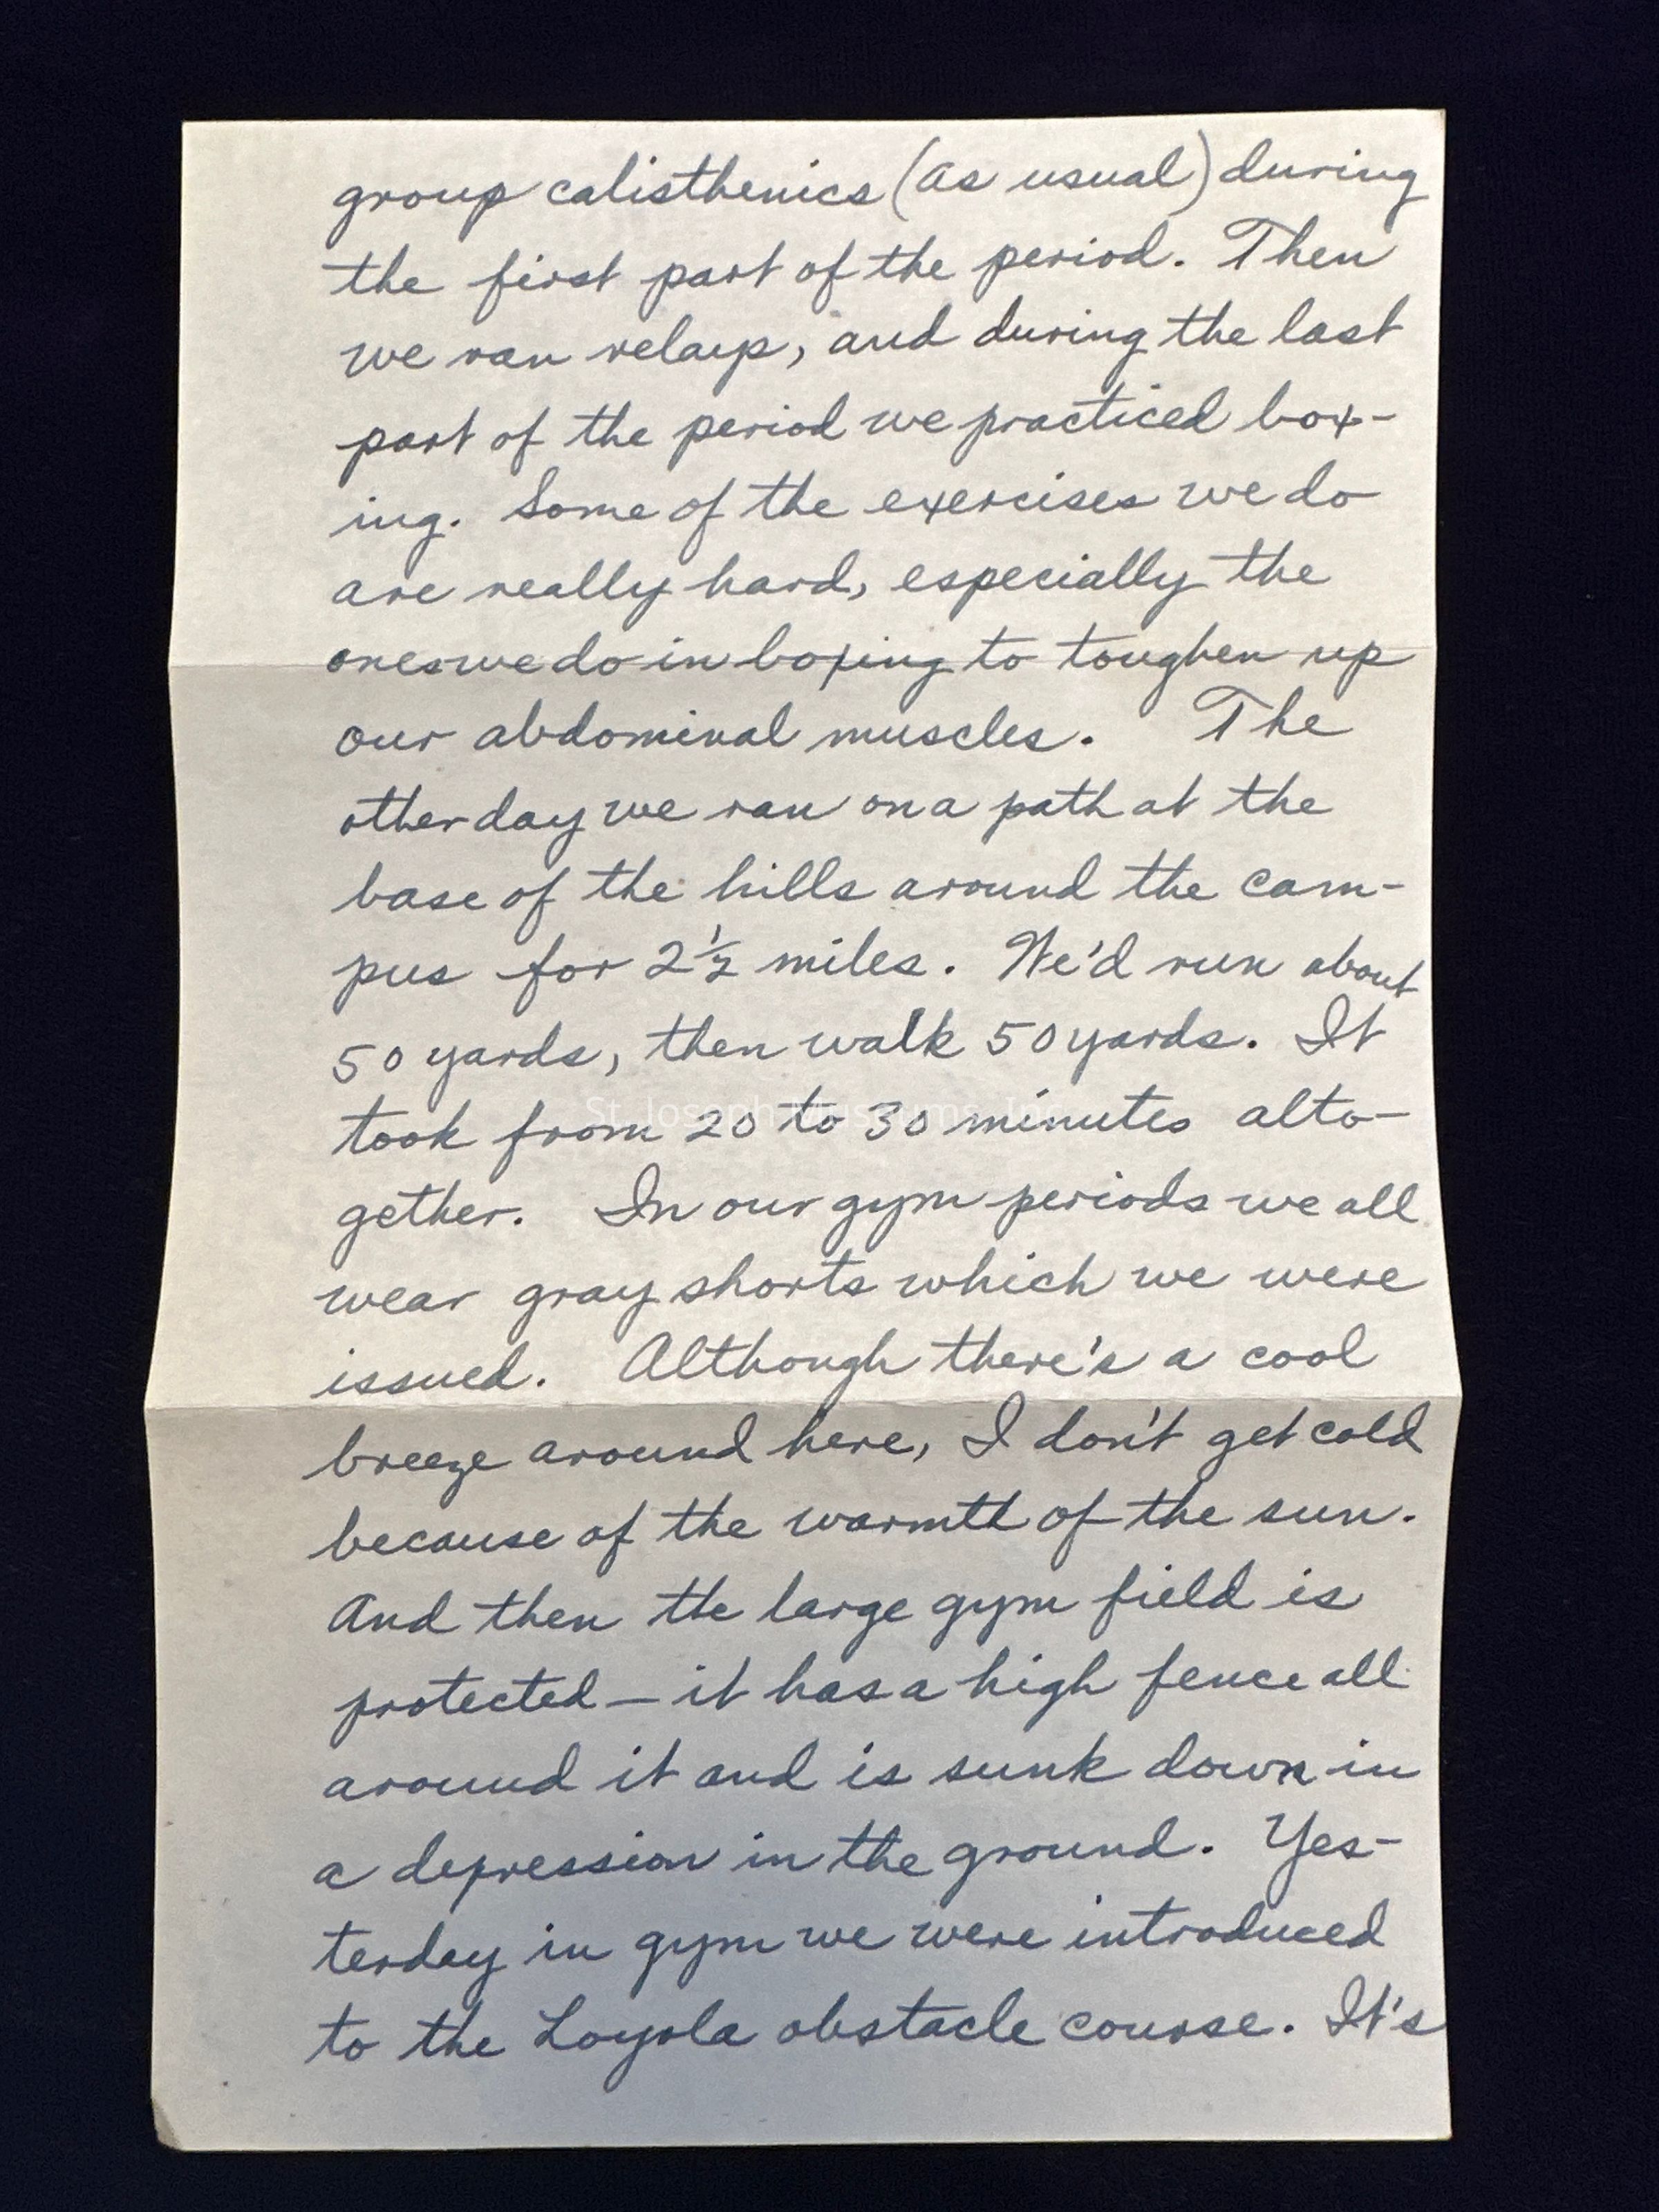 group calisthenics (as usual) during
the first part of the period. Then
we ran relays, and during the last
part of the period we practiced box-
ing. Some of the exercises we do
are really hard, especially the
ones we do in boxing to toughen up
our abdominal muscles. The
other day we ran on a path at the
base of the hills around the cam-
pus for 2½ miles. We'd run about
50 yards, then walk 50 yards. It
St. Joseph Museums, Inc.
took from 20 to 30 minutes alto-
gether. In our gym periods we all
wear gray shorts which we were
issued. Although there's a cool
breeze around here, I don't get cold
because of the warmth of the sun.
And then the large gym field is
protected — it has a high fence all
around it and is sunk down in
a depression in the ground. Yes-
terday in gym we were introduced
to the Loyola obstacle course. It's